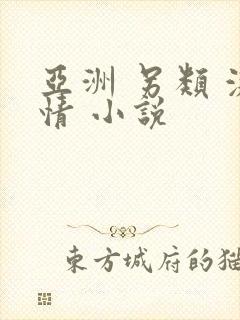 亞洲 另類 
情 小說
東方城府的